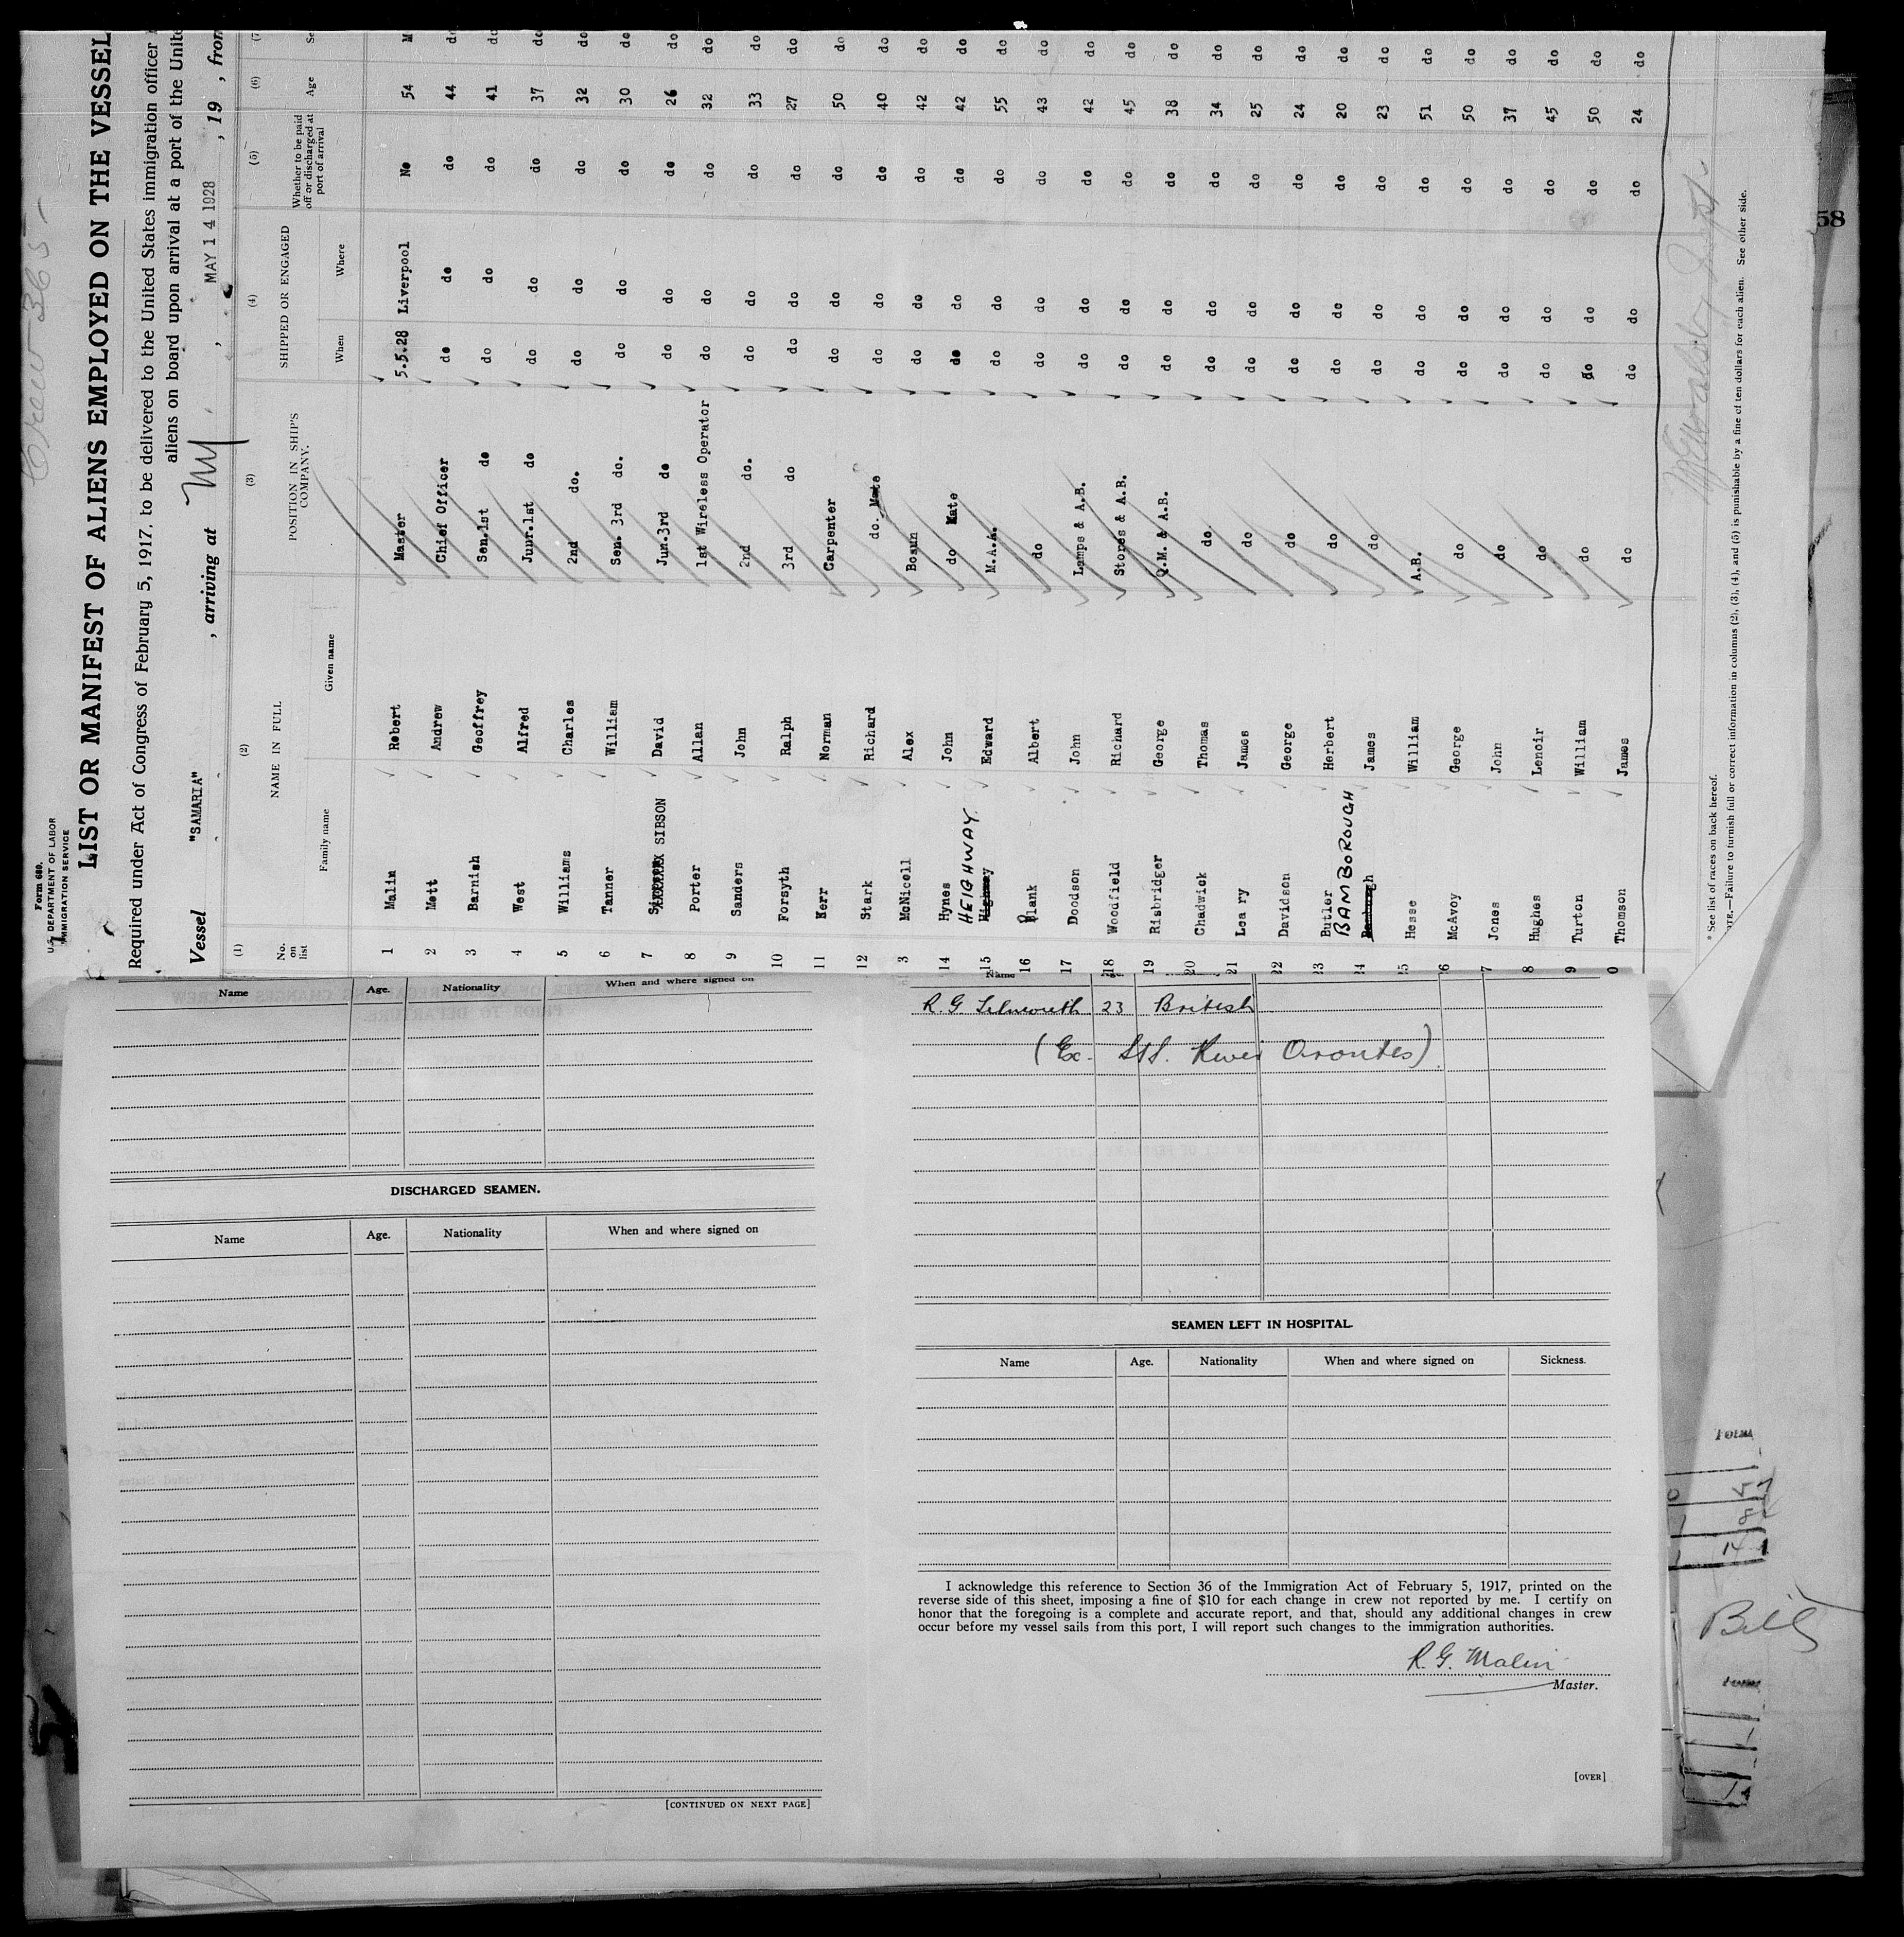 Crew 365 -
Form 680.
U.S. DEPARTMENT OF LABOR
IMMIGRATION SERVICE
LIST OR MANIFEST OF ALIENS EMPLOYED ON THE VESSEL
Required under Act of Congress of February 5, 1917, to be delivered to the United States immigration officer
aliens on board upon arrival at a port of the Unite
Vessel "SAMARIA" , arriving at NY , MAY 14 1928 , 19 , from
(1) (2) (3) (4) (5) (6) (7
No. on list NAME IN FULL POSITION IN SHIP'S COMPANY. SHIPPED OR ENGAGED Whether to be paid off or discharged at port of arrival Age Se
Family name Given name When Where
1 Malin Robert Master 5.5.28 Liverpool No 54 M
2 Mott Andrew Chief Officer do do do 44 do
3 Barnish Geoffrey Sen.1st do do do do 41 do
4 West Alfred Junr.1st do do do do 37 do
5 Williams Charles 2nd do. do do do 32 do
6 Tanner William Sen. 3rd do. do do do 30 do
7 SIBSON David Jun.3rd do do do do 26 do
8 Porter Allan 1st Wireless Operator do do do 32 do
9 Sanders John 2nd do. do do do 33 do
10 Forsyth Ralph 3rd do do do do 27 do
11 Kerr Norman Carpenter do do do 50 do
12 Stark Richard do. Mate do do do 40 do
3 McNicoll Alex Bosun do do do 42 do
14 Hynes John do Mate do do do 42 do
15 HEIGHWAY. Highway Edward M.A.A. do do do 55 do
16 Plank Albert do do do do 43 do
17 Doodson John Lamps & A.B. do do do 42 do
18 Woodfield Richard Stores & A.B. do do do 45 do
19 Risbridger George Q.M. & A.B. do do do 38 do
20 Chadwick Thomas do do do do 34 do
21 Lea ry James do do do do 25 do
22 Davidson George do do do do 24 do
23 Butler Herbert do do do do 20 do
24 BAMBOROUGH James do do do do 23 do
25 Hesse William A.B. do do do 51 do
6 McAvoy George do do do do 50 do
7 Jones John do do do do 37 do
8 Hughes Lenoir do do do do 45 do
9 Turton William do do do do 50 do
0 Thomson James do do do do 24 do
* See list of races on back hereof.
TE.—Failure to furnish full or correct information in columns (2), (3), (4), and (5) is punishable by a fine of ten dollars for each alien. See other side.
58
Name Age. Nationality When and where signed on
DISCHARGED SEAMEN.
Name Age. Nationality When and where signed on
[CONTINUED ON NEXT PAGE]
Name
R. G. 23 British
(Ex. SS. River Orontes)
SEAMEN LEFT IN HOSPITAL.
Name Age. Nationality When and where signed on Sickness.
I acknowledge this reference to Section 36 of the Immigration Act of February 5, 1917, printed on the
reverse side of this sheet, imposing a fine of $10 for each change in crew not reported by me. I certify on
honor that the foregoing is a complete and accurate report, and that, should any additional changes in crew
occur before my vessel sails from this port, I will report such changes to the immigration authorities.
R. G. Malin
Master.
[OVER]